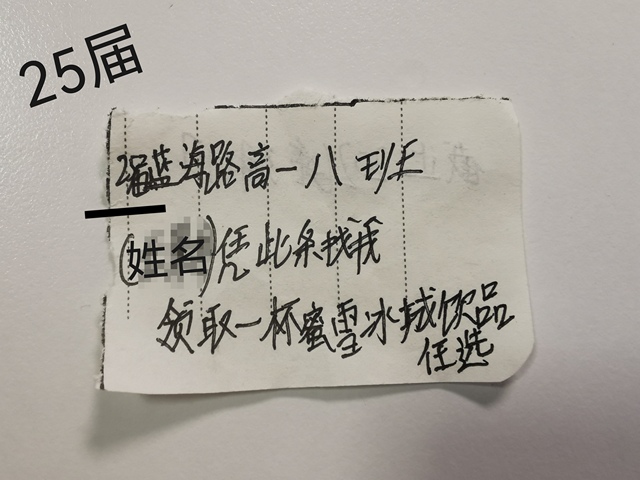 25届
25届蓝海路高一八班
(姓名)凭此条找我
领取一杯蜜雪冰城饮品
任选